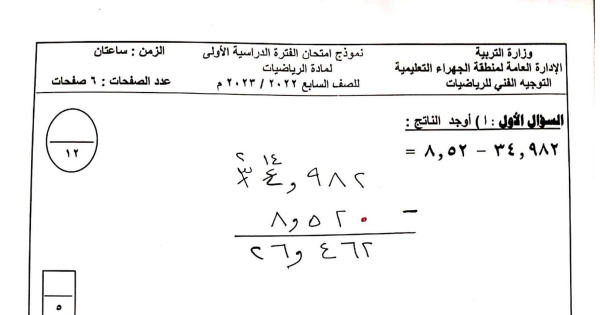 وزارة التربية
الإدارة العامة لمنطقة الجهراء التعليمية
التوجيه الفني للرياضيات
نموذج امتحان الفترة الدراسية الأولى
لمادة الرياضيات
للصف السابع ٢٠٢٢ / ٢٠٢٣ م
الزمن : ساعتان
عدد الصفحات : ٦ صفحات
السؤال الأول : ا ) أوجد الناتج :
٣٤,٩٨٢ − ٨,٥٢ =
١٢
٢ ١٤
٣٤,٩٨٢
٨,٥٢٠ −
٢٦,٤٦٢
٥